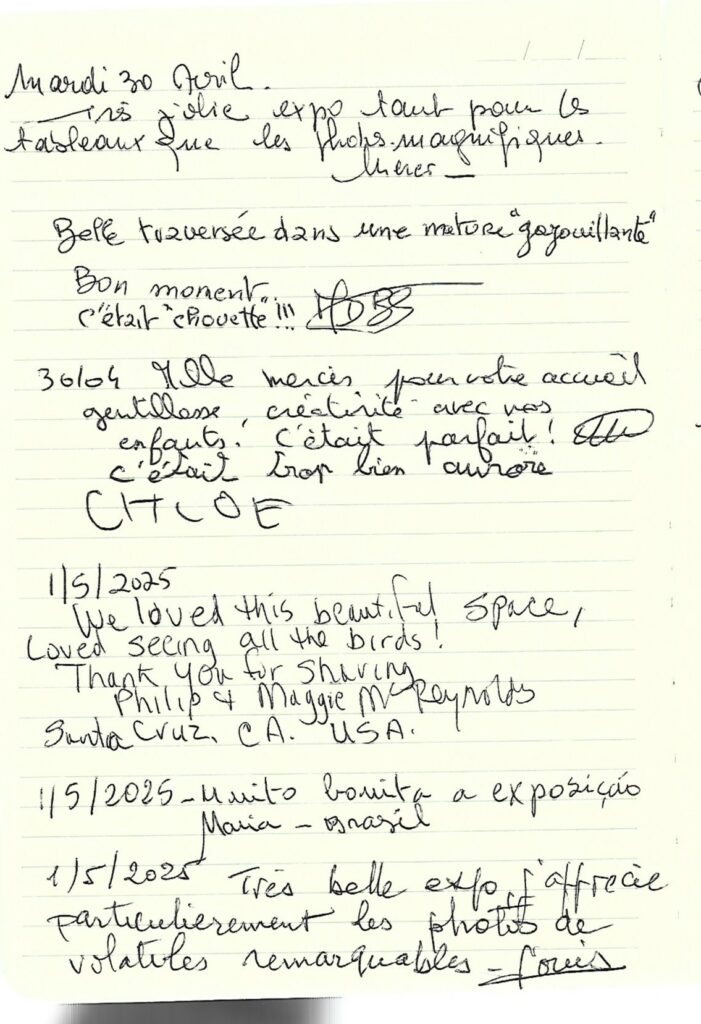 Mardi 30 Avril.
Très jolie expo tant pour les
tableaux que les photos magnifiques.
Merci
Belle traversée dans une nature "gazouillante"
Bon moment
c'était "chouette"!!!
30/04 Mille mercis pour votre accueil
gentillesse, créativité avec nos
enfants! C'était parfait!
c'était trop bien aurore
CHLOE
1/5/2025
We loved this beautiful space,
Loved seeing all the birds!
Thank you for sharing
Philip & Maggie McReynolds
Santa Cruz, CA. USA.
1/5/2025 - Muito bonita a exposição
Maria - Brasil
1/5/2025 Très belle expo j'apprécie
particulièrement les photos de
volatiles remarquables - Louis